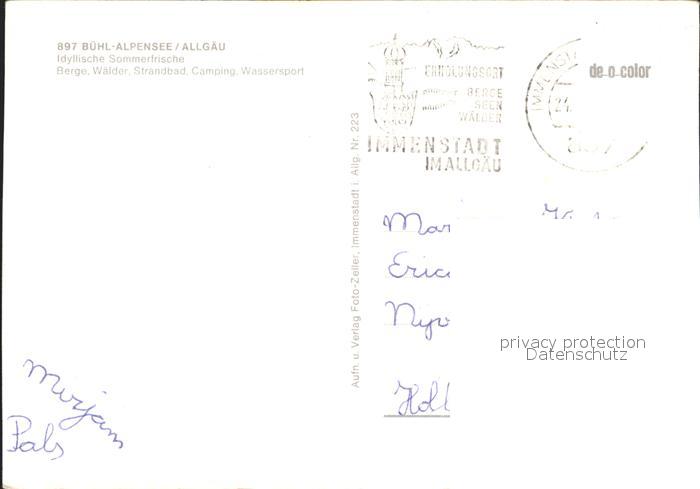 897 BÜHL-ALPENSEE / ALLGÄU
Idyllische Sommerfrische
Berge, Wälder, Strandbad, Camping, Wassersport
ERHOLUNGSORT
BERGE
SEEN
WÄLDER
IMMENSTADT
IM ALLGÄU
de-o-color
Aufn. u. Verlag Foto-Zeller, Immenstadt i. Allg. Nr. 223
Mar
Eric
Holl
privacy protection
Datenschutz
Mirjam